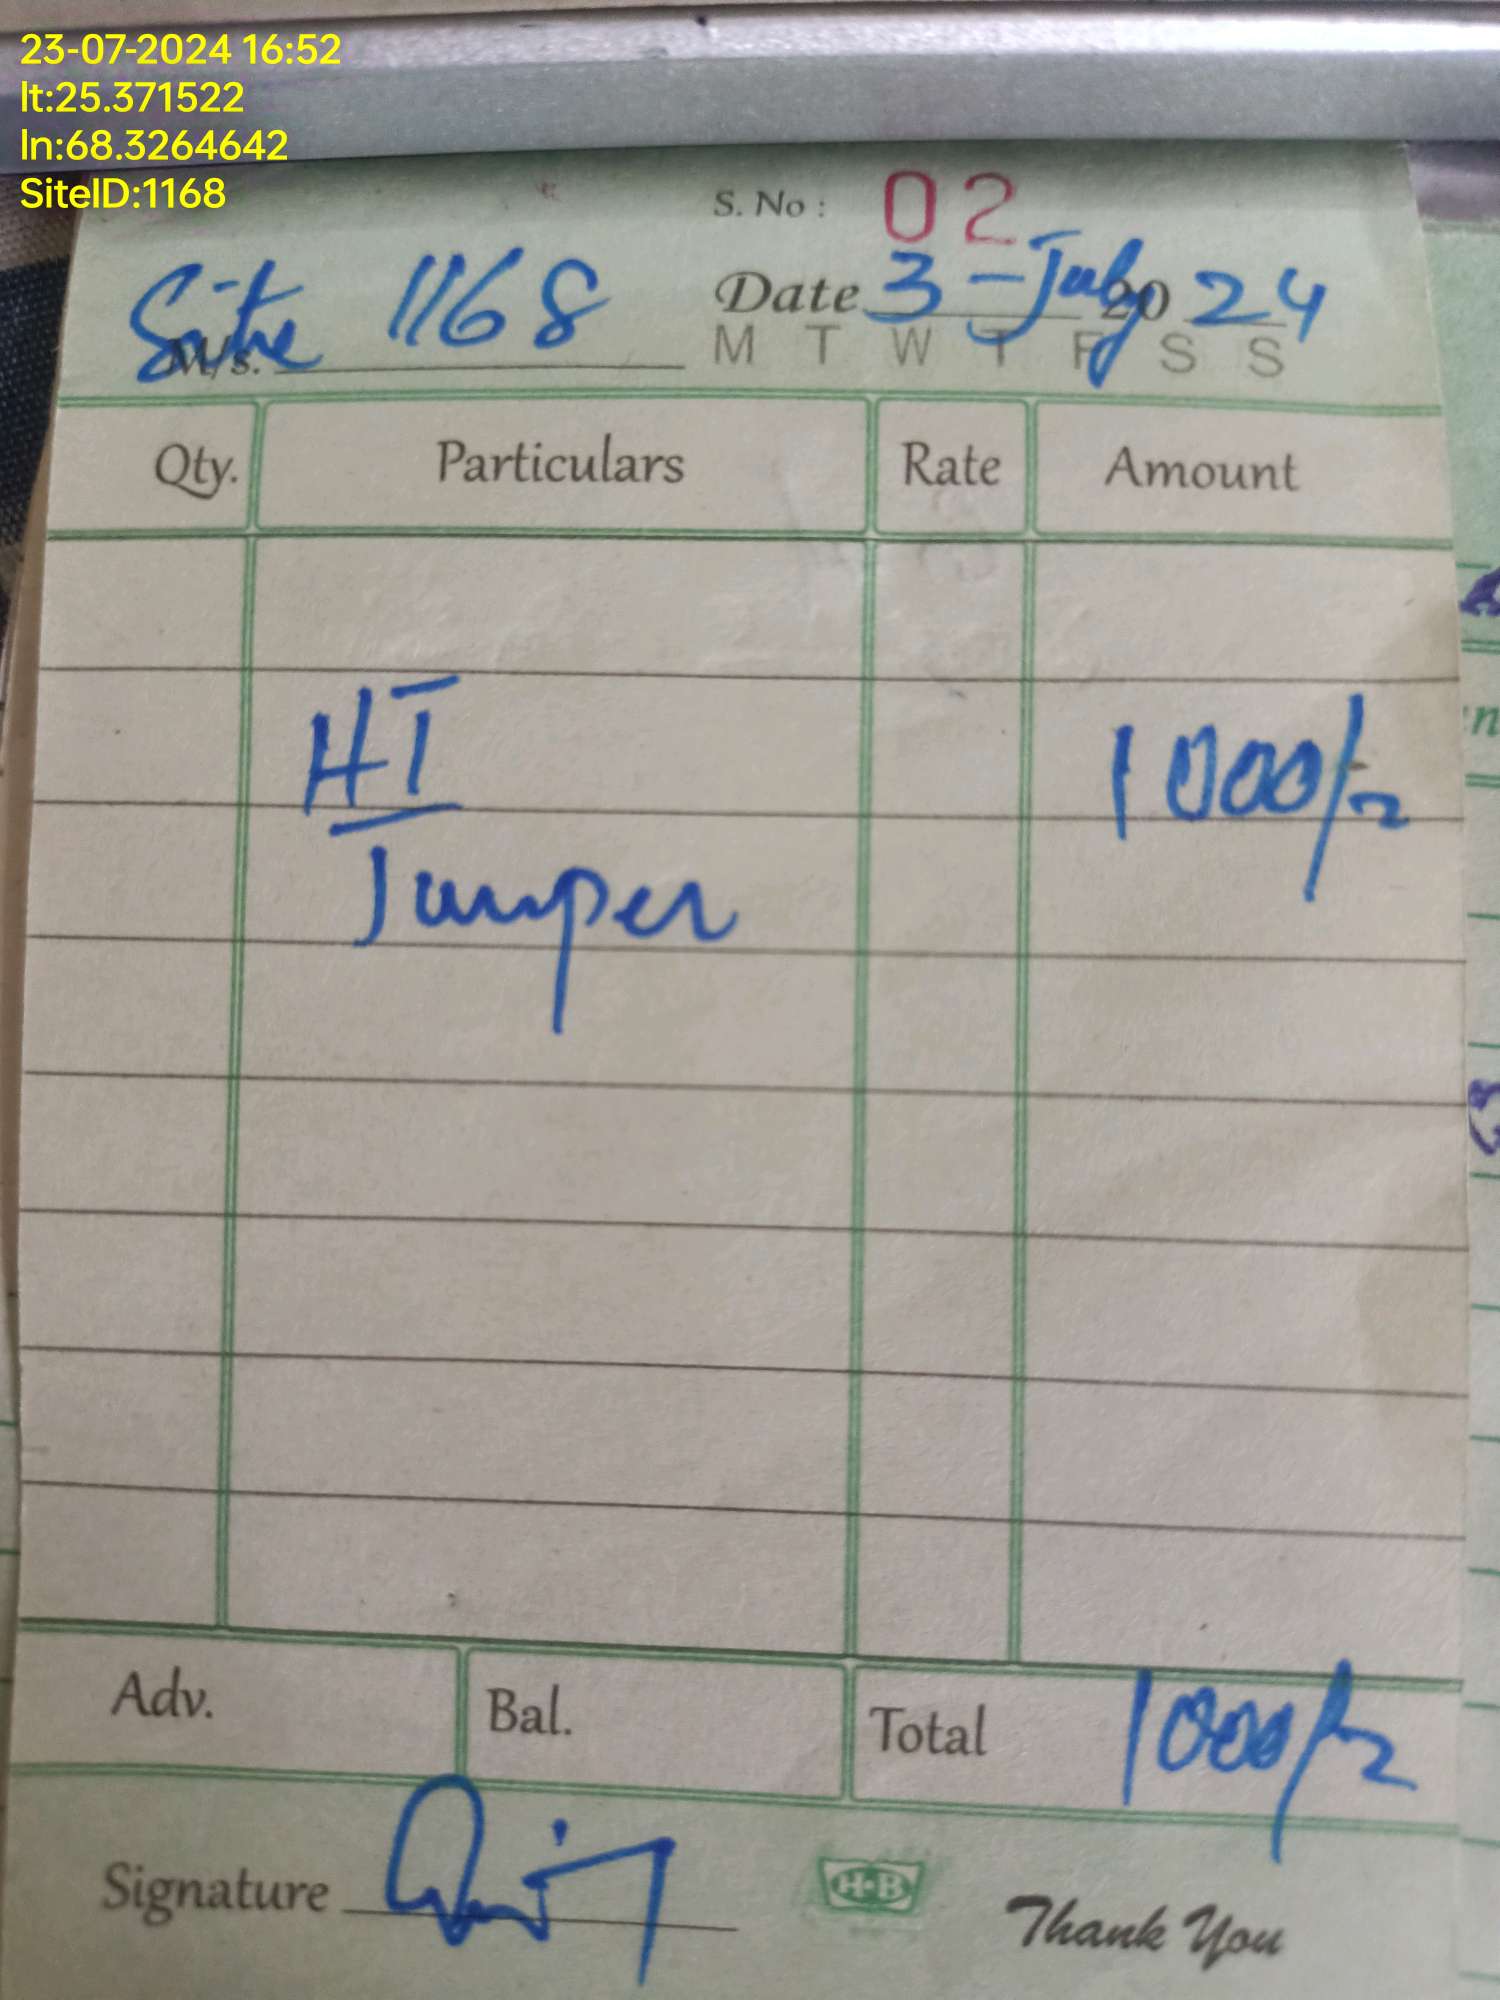 23-07-2024 16:52
lt:25.371522
ln:68.3264642
SiteID:1168
S. No : 02
Site 1168
M/s.
Date 3 - July 2024
M T W T F S S
Qty. Particulars Rate Amount
HT 1000/-
Jumper
Adv. Bal. Total 1000/-
Signature
H·B
Thank You